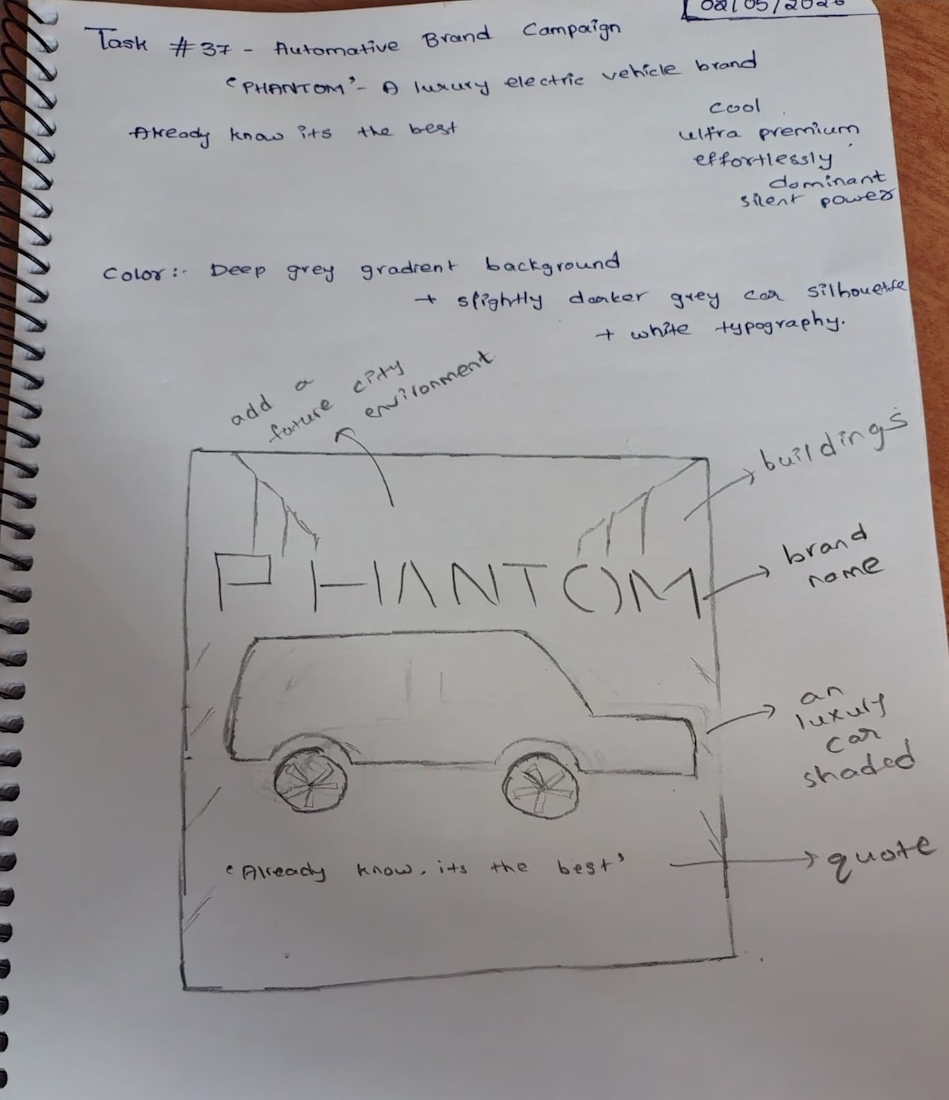 02/05/2026
Task #37 - Automative Brand Campaign
'PHANTOM' - A luxury electric vehicle brand
Already know its the best
cool
ultra premium
effortlessly
dominant
silent power
Color:- Deep grey gradient background
+ slightly darker grey car silhouette
+ white typography.
add a
future city
environment
buildings
PHANTOM
brand
name
an
luxury
car
shaded
'Already know. its the best'
quote